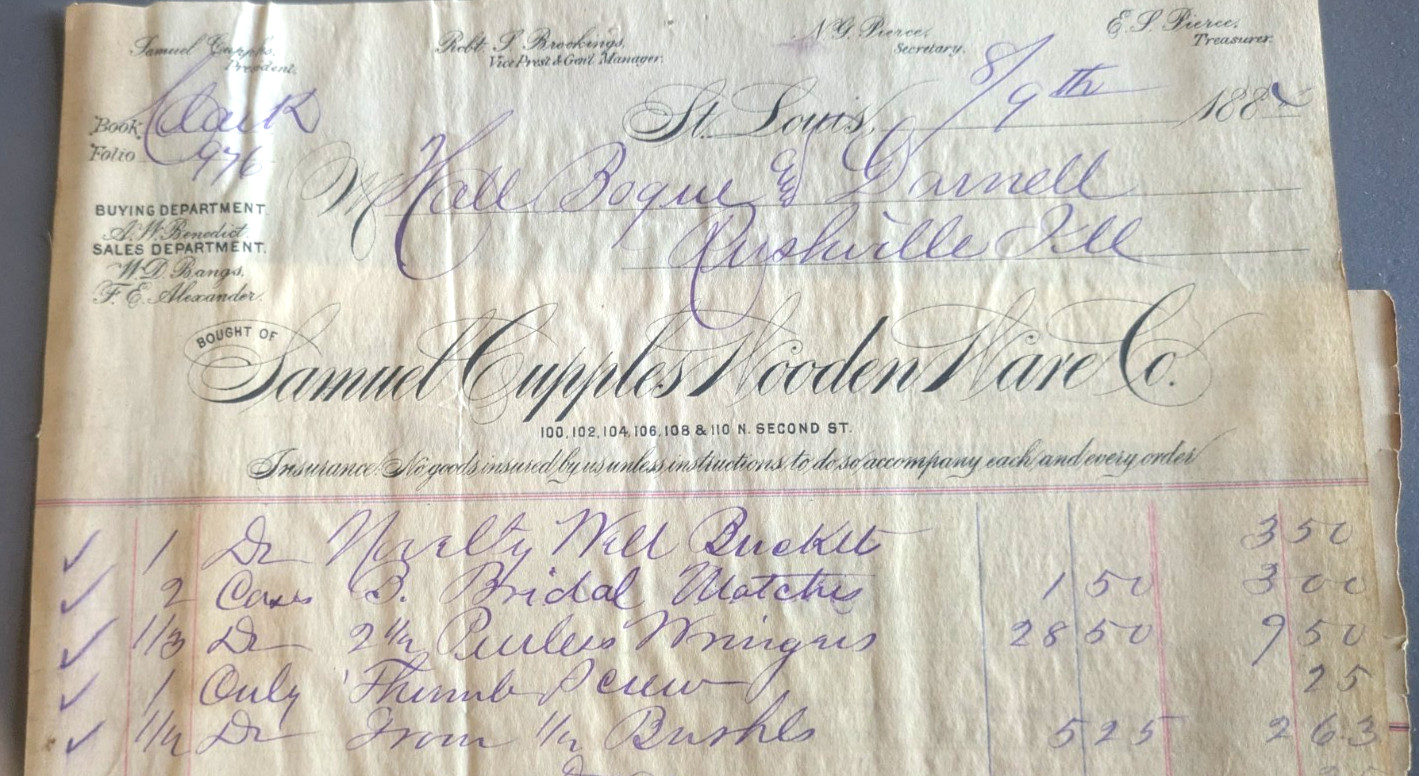 Samuel Cupples, President.
Robt. S. Brookings, Vice Prest & Genl Manager.
N. G. Pierce, Secretary.
E. S. Pierce, Treasurer.
Book Clark
Folio 976
St. Louis, 8/9th 188
M Hall Bogue & Darnell
Rushville Ill
BUYING DEPARTMENT
A. W. Benedict.
SALES DEPARTMENT.
W. D. Bangs,
F. E. Alexander.
BOUGHT OF
Samuel Cupples Wooden Ware Co.
100, 102, 104, 106, 108 & 110 N. SECOND ST.
Insurance. No goods insured by us unless instructions to do so accompany each and every order
1 Dz Novelty Well Bucket 3 50
2 Cases B. Bridal Matches 1 50 3 00
1/3 Dz 2 1/2 Peerless Wringers 28 50 9 50
1 Only Thumb Screw 25
1/2 Dz 1/2 Bushls 5 25 2 63